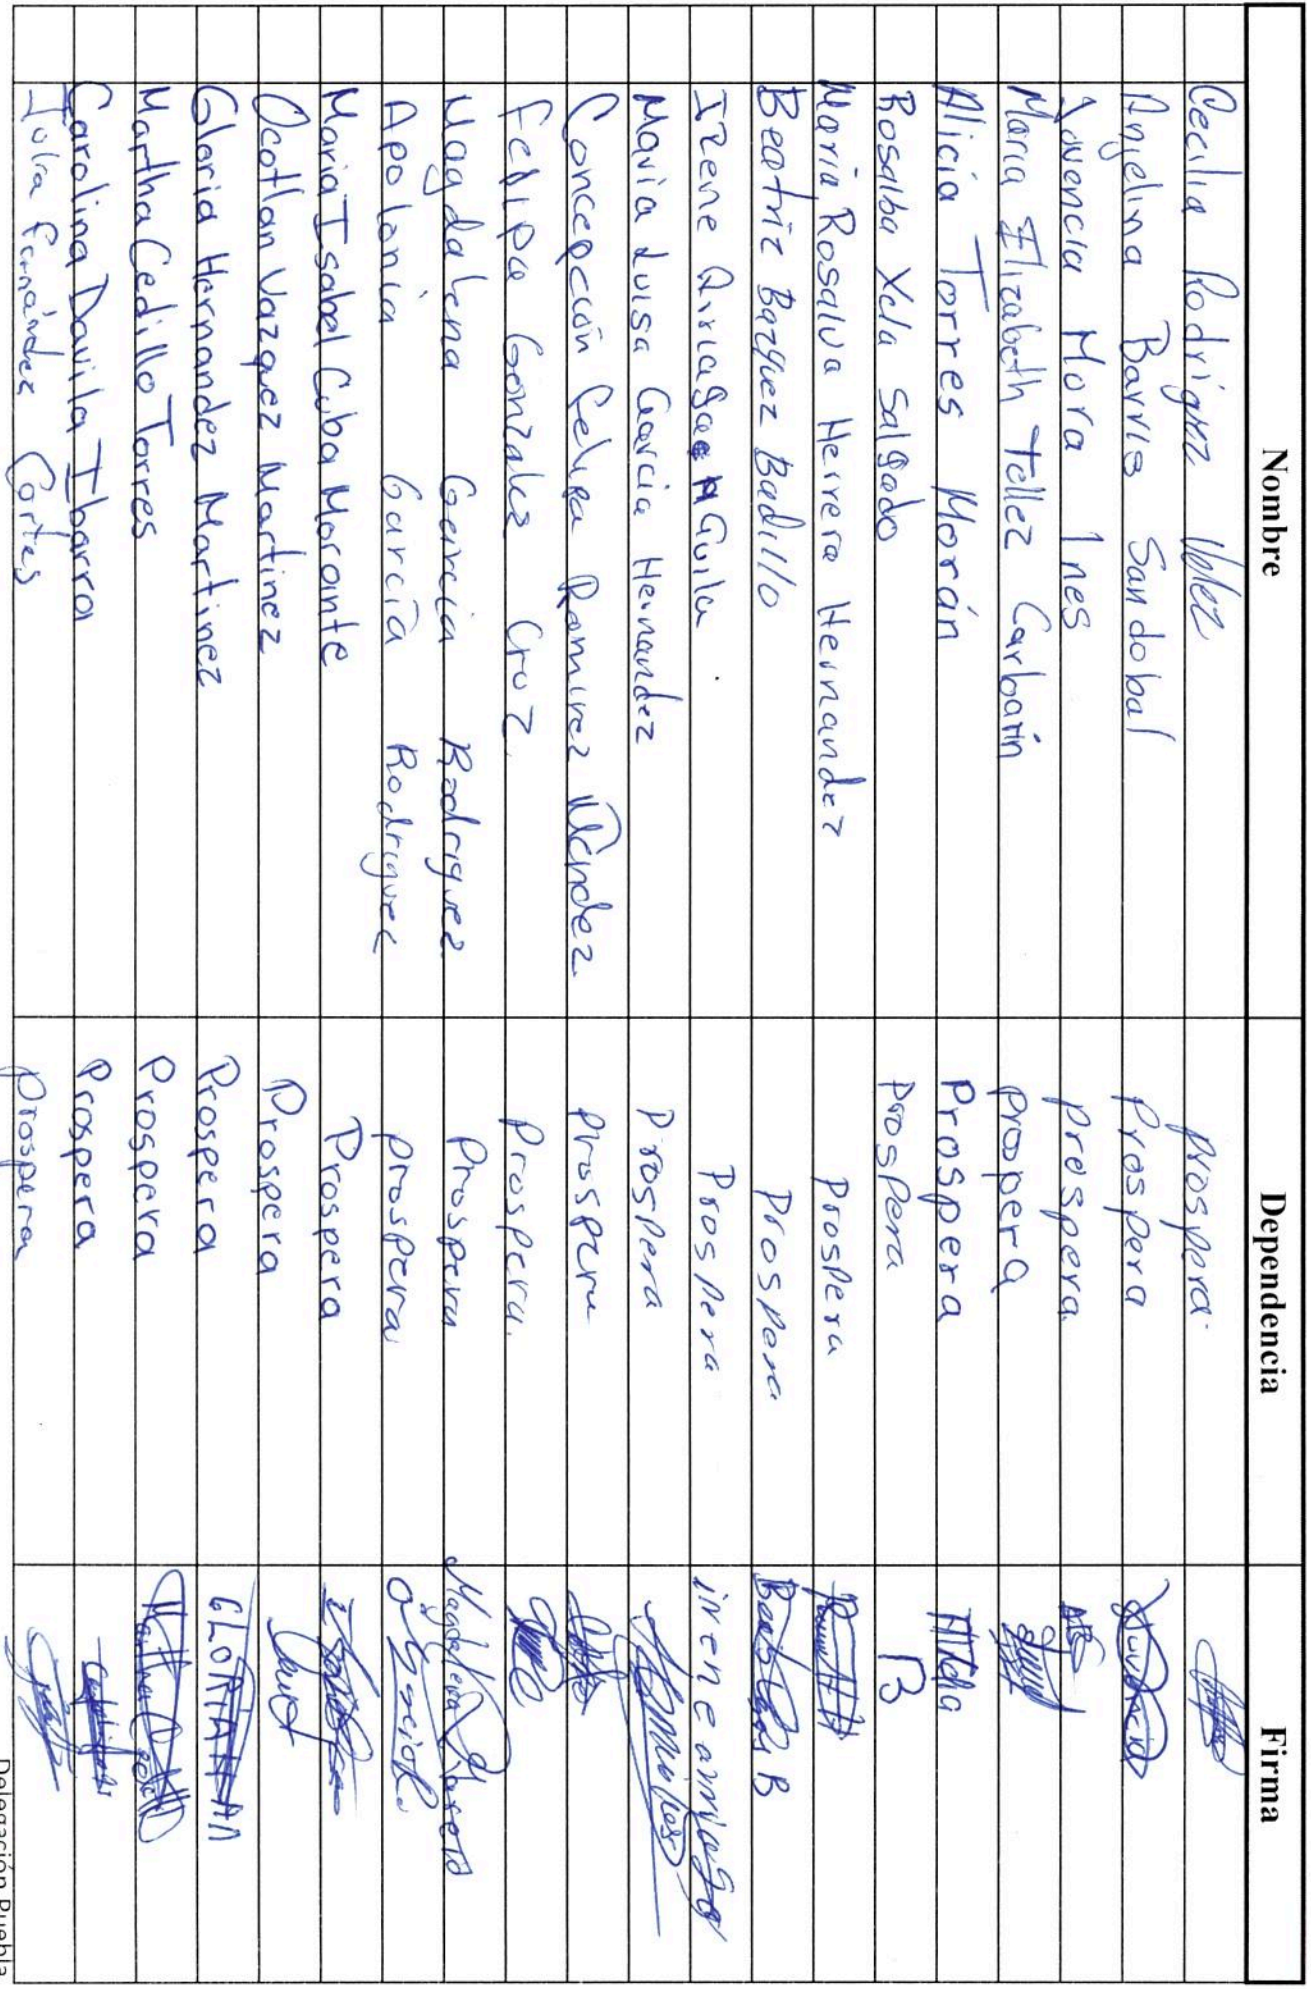 Nombre Dependencia Firma
Cecilia Rodriguez Velez prospera
Angelina Barrios Sandobal Prospera
Juvencia Mora Ines prospera
Maria Elizabeth Tellez Carbarin prospera
Alicia Torres Morán Prospera
Rosalba Xela Salgado Prospera B
Maria Rosalva Herrera Hernandez Prospera
Beatriz Bazquez Badillo Prospera
Irene Arriaga Aguila Prospera irene arriaga
Maria Luisa Garcia Hernandez Prospera
Concepción Felipa Ramirez Méndez prospera
Felipa Gonzalez Cruz Prospera.
Magdalena Garcia Rodriguez Prospera Magdalena
Apolonia Garcia Rodriguez prospera
Maria Isabel Cuba Morante Prospera
Ocotlan Vazquez Martinez Prospera
Gloria Hernandez Martinez Prospera GLORIA
Martha Cedillo Torres Prospera
Carolina Davila Ibarra Prospera
Julia Fernández Cortes Prospera
Delegación Puebla